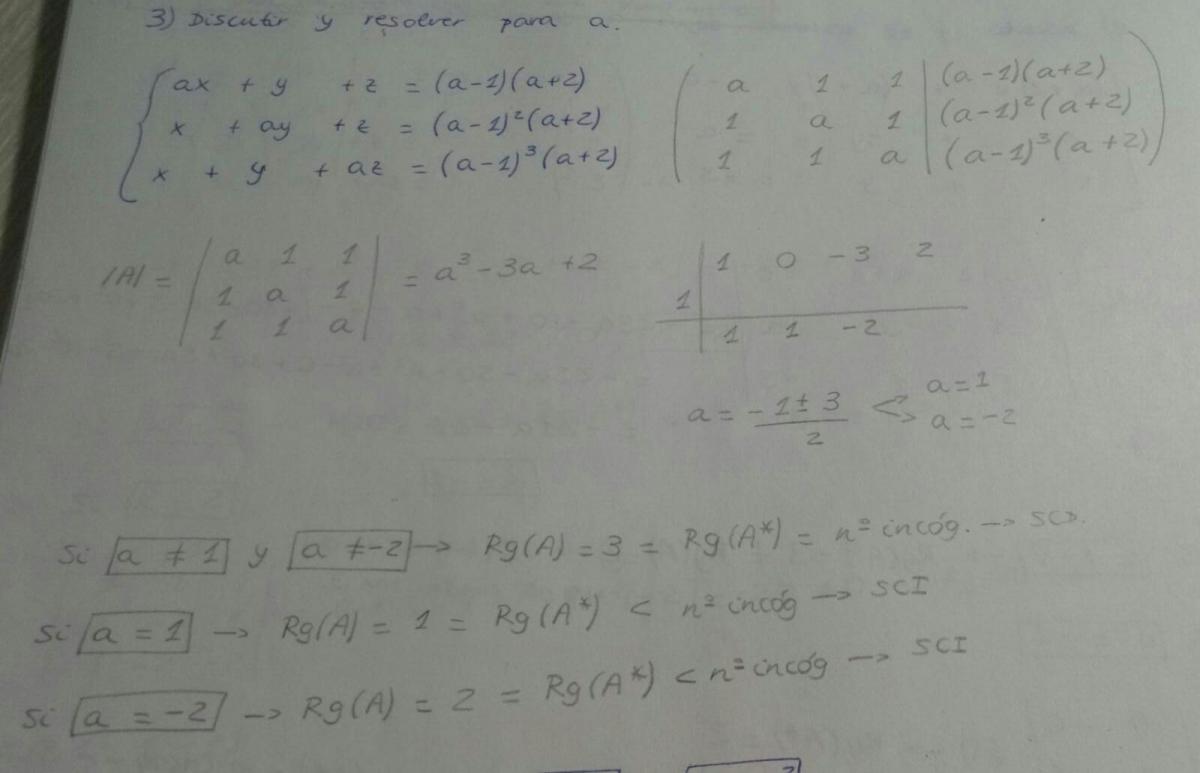 3) Discutir y resolver para a.
ax + y + z = (a-1)(a+2)
x + ay + z = (a-1)²(a+2)
x + y + az = (a-1)³(a+2)
a 1 1 | (a-1)(a+2)
1 a 1 | (a-1)²(a+2)
1 1 a | (a-1)³(a+2)
|A| = | a 1 1 | = a³ - 3a + 2
| 1 a 1 |
| 1 1 a |
1 0 -3 2
1
1 1 -2
a = -1 ± 3 / 2 < a = 1
a = -2
Si a ≠ 1 y a ≠ -2 → Rg(A) = 3 = Rg(A*) = nº incóg. → SCD.
Si a = 1 → Rg(A) = 1 = Rg(A*) < nº incóg → SCI
Si a = -2 → Rg(A) = 2 = Rg(A*) < nº incóg → SCI